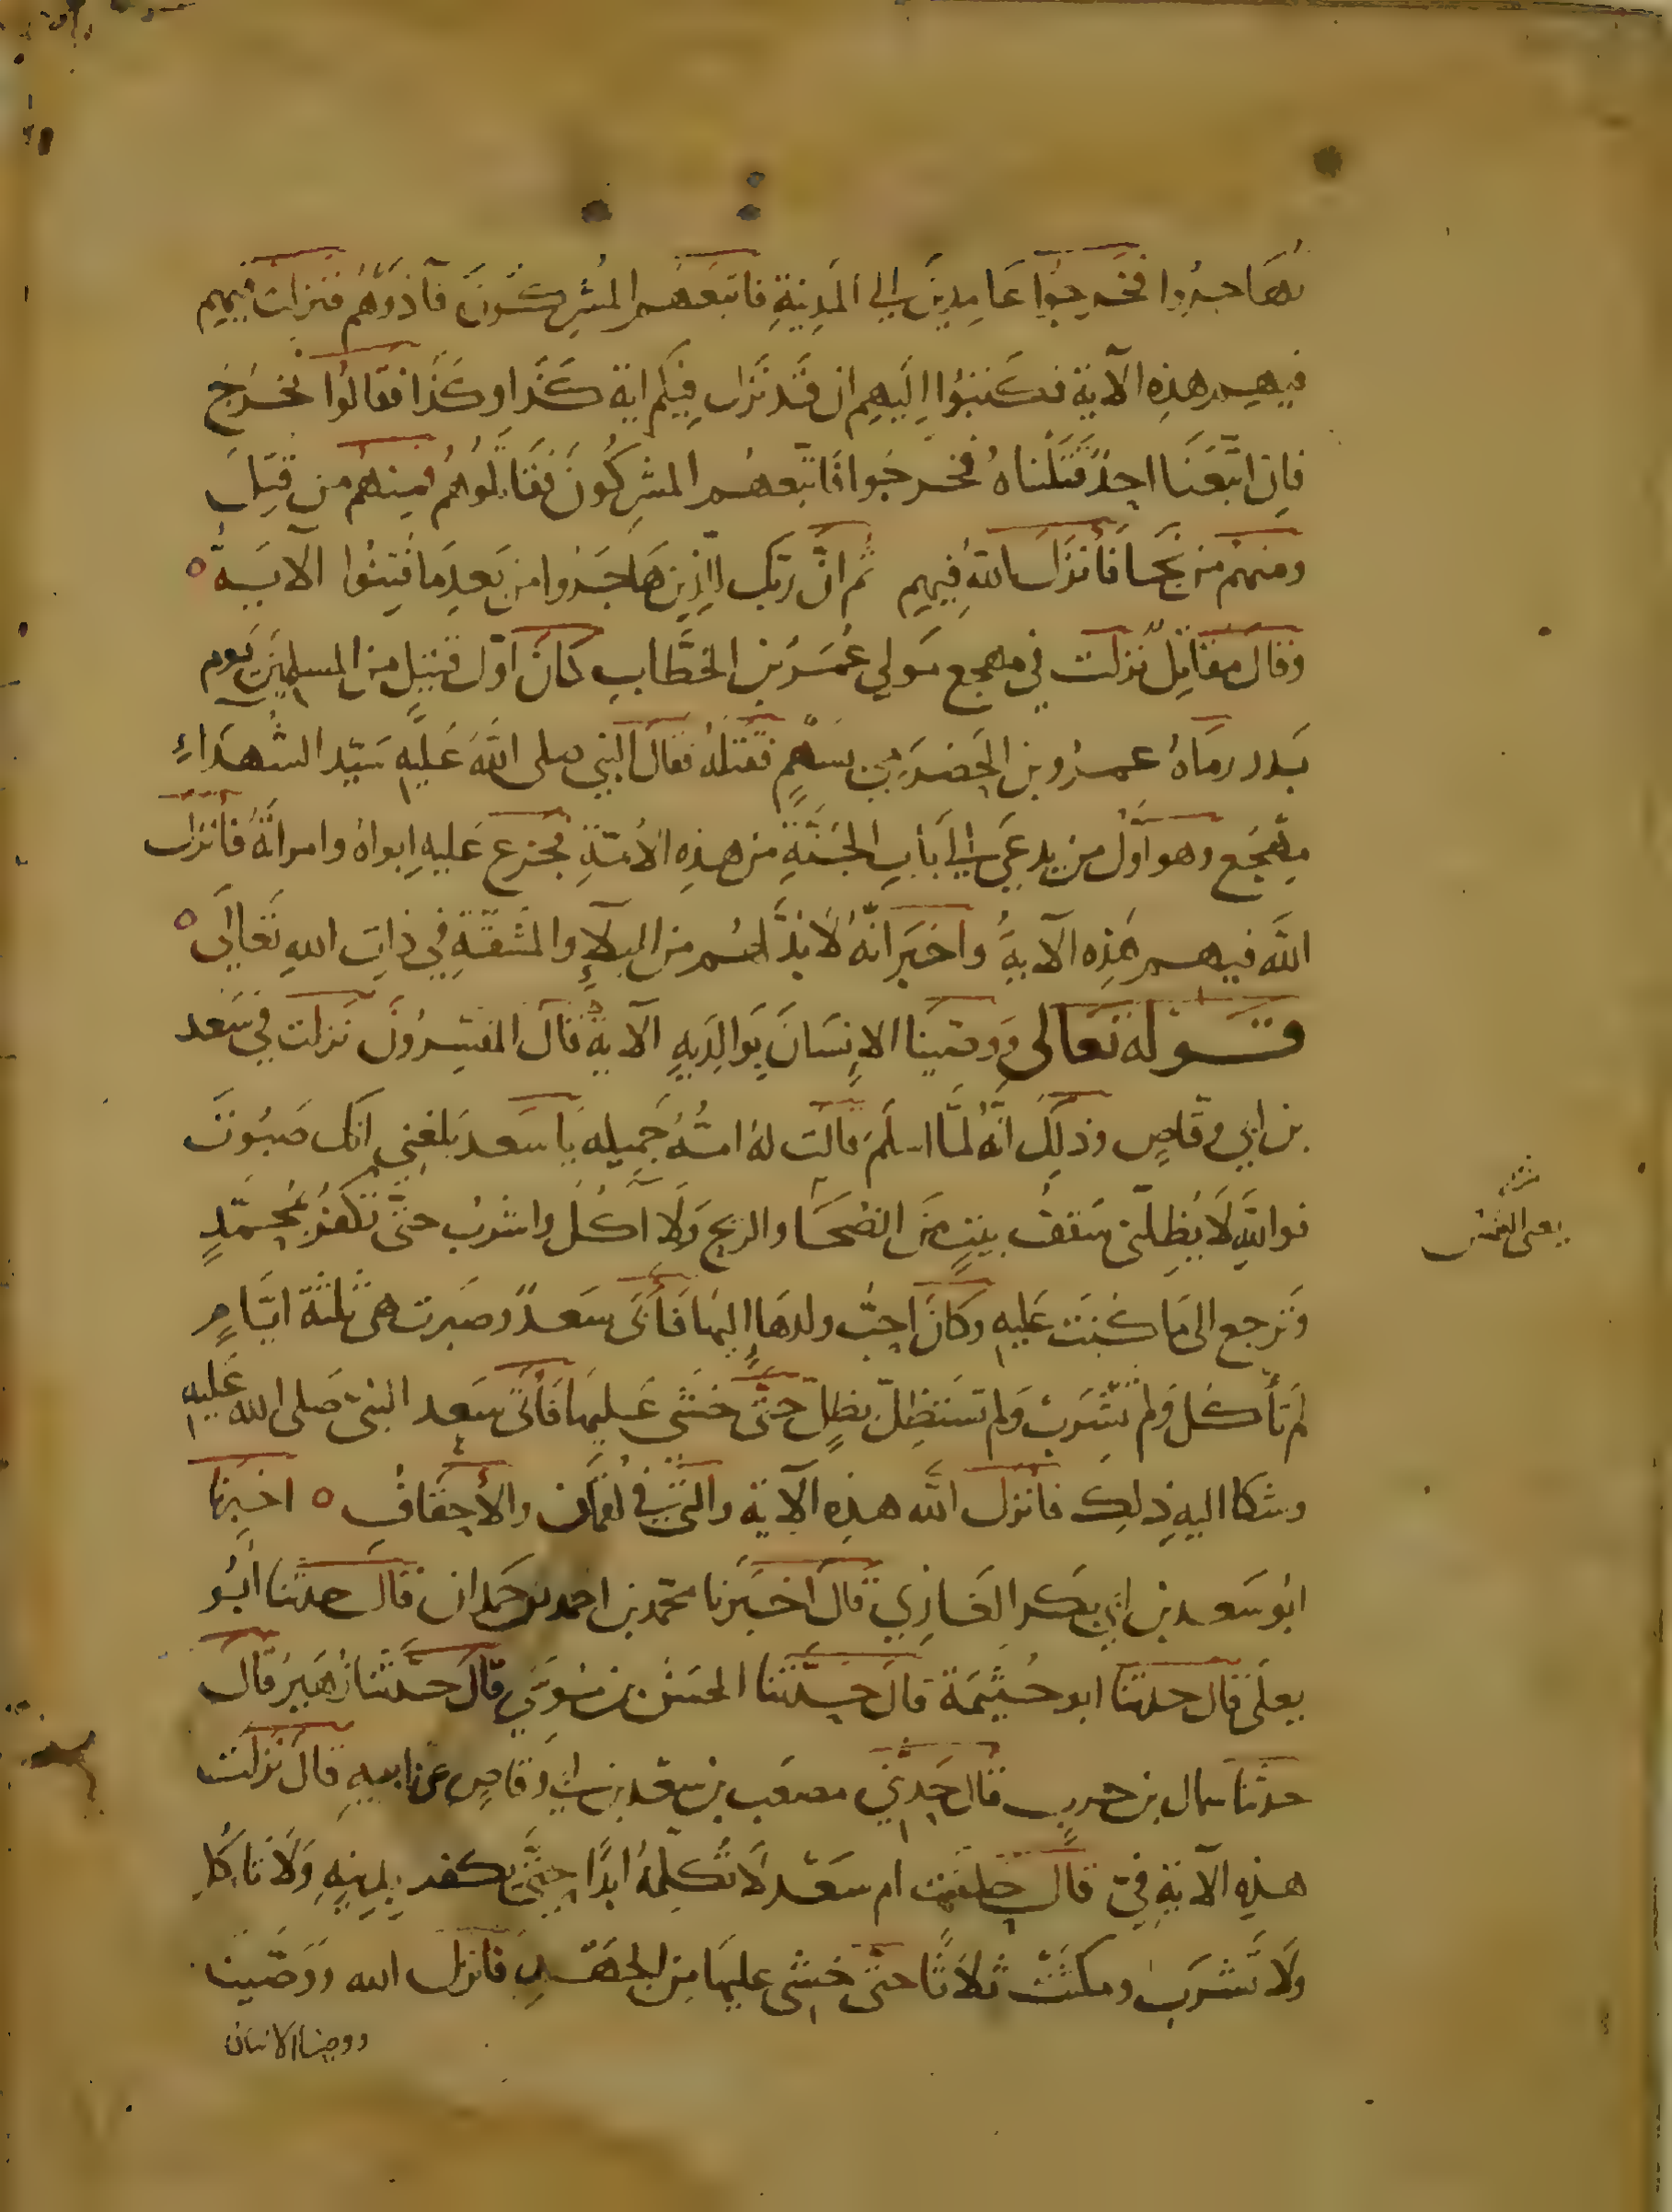 تهاجروا فخرجوا عامدين الى المدينة فاتبعهم المشركون فآذوهم فنزلت فيهم
فيهم هذه الآية فكتبوا اليهم ان قد نزل فيكم اية كذا وكذا فقالوا نخرج
فان اتبعنا احدٌ قتلناه فخرجوا فاتبعهم المشركون فقاتلوهم فمنهم من قتل
ومنهم من نجا فأنزل الله فيهم ثم ان ربك للذين هاجروا من بعد ما فتنوا الآية
وقال مقاتل نزلت في مهجع مولي عمر بن الخطاب كان اول قتيل من المسلمين يوم
بدر رماه عمرو بن الحضرمي بسهم فقتله فقال النبي صلى الله عليه سيد الشهداء
مهجع وهو اول من يدعى الى باب الجنة من هذه الامة فجزع عليه ابواه وامراته فأنزل
الله فيهم هذه الآية واخبر انه لا بد لهم من البلاء والمشقة في ذات الله تعالى
قوله تعالى ووصينا الانسان بوالديه الآية قال المفسرون نزلت في سعد
بن ابي وقاص وذلك انه لما اسلم قالت له امه جميله يا سعد بلغني انك صبوت
فوالله لا يظلني سقف بيت من الضحا والريح ولا آكل واشرب حتى تكفر بمحمد
وترجع الى ما كنت عليه وكان احب ولدها اليها فأبى سعدٌ وصبرت هي ثلثة ايام
لم تأكل ولم تشرب ولم تستظل بظل حتى خشي عليها فأتى سعد النبي صلى الله عليه
وشكا اليه ذلك فانزل الله هذه الآية والتي في لقمان والأحقاف اخبرنا
ابو سعد بن ابي بكر الغازي قال اخبرنا محمد بن احمد بن حمدان قال حدثنا ابو
يعلى قال حدثنا ابو خيثمة قال حدثنا الحسن بن موسى قال حدثنا زهير قال
حدثنا سماك بن حرب قال حدثني مصعب بن سعد بن ابي وقاص عن ابيه قال نزلت
هذه الآية في قال حلفت ام سعد لا تكلمه ابدًا حتى يكفر بدينه ولا تاكل
ولا تشرب ومكثت ثلاثًا حتى خشى عليها من الجهد فانزل الله ووصينا
ووصينا الانسان
يعني الشمس